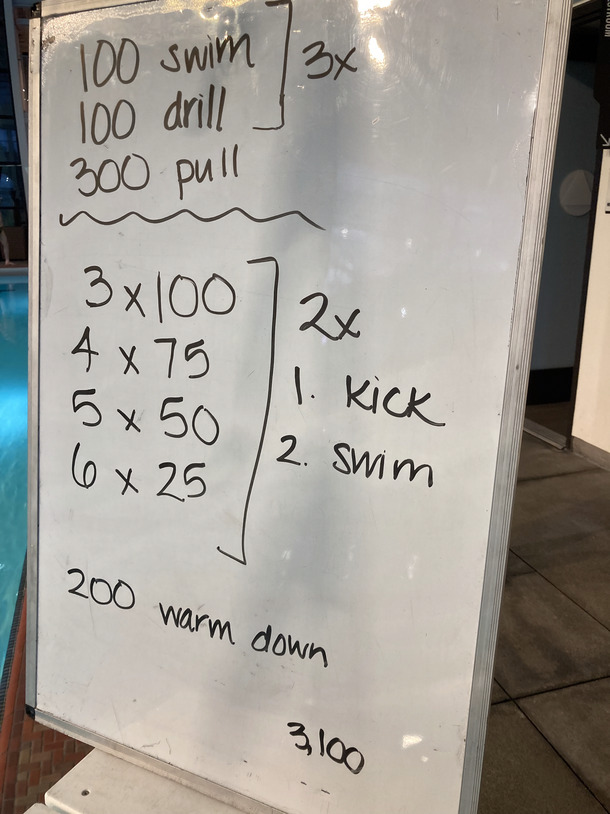 100 swim
100 drill
3x
300 pull
3 x 100
4 x 75
5 x 50
6 x 25
2x
1. Kick
2. swim
200 warm down
3,100